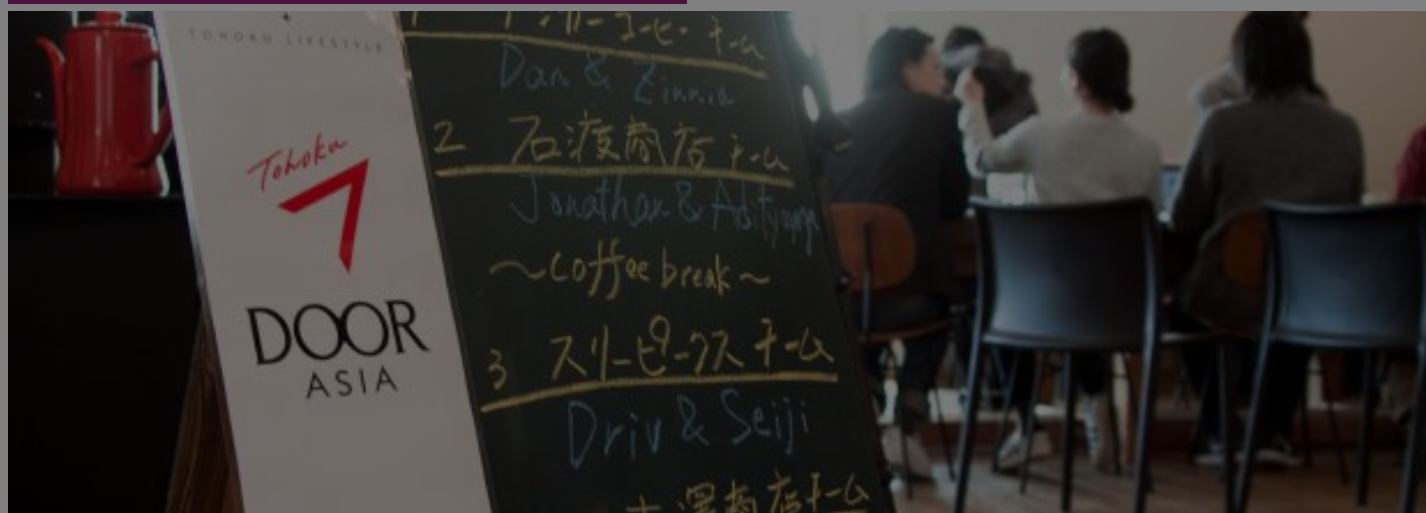 TOHOKU LIFESTYLE
Tohoku
DOOR
ASIA
チーム
Dan & Zinnia
2 石渡商店 チーム
Jonathan &
~coffee break~
3 スリーピークス チーム
Driv & Seiji
澤商店チーム